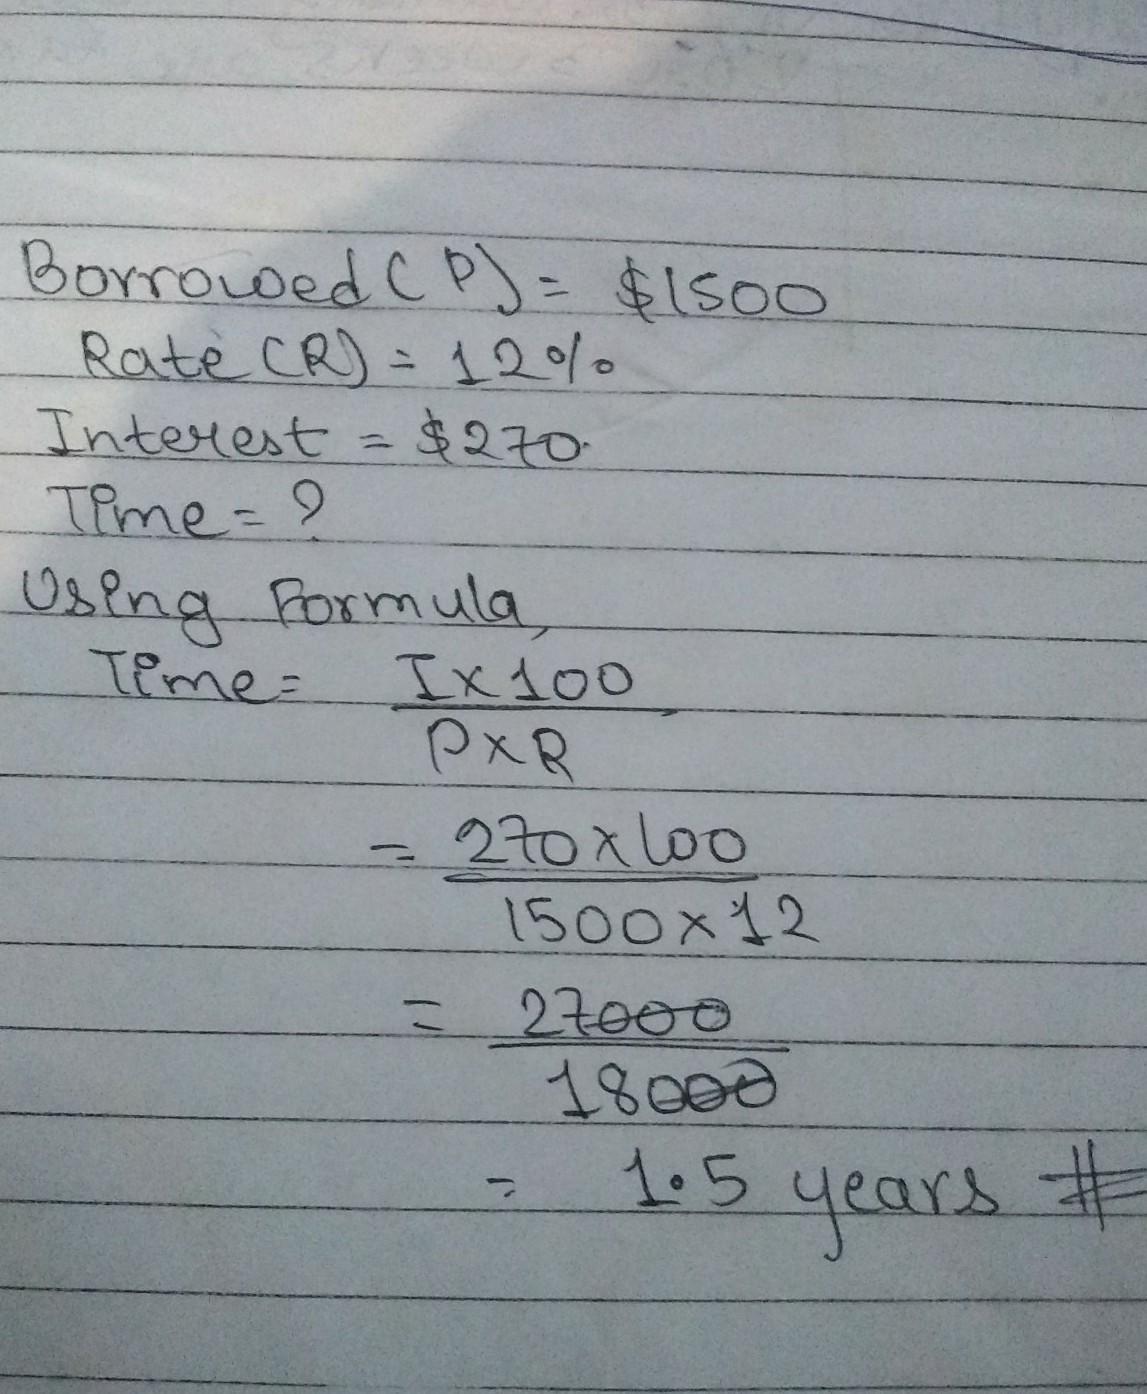 Borrowed (P) = $1500
Rate (R) = 12%
Interest = $270.
Time = ?
Using Formula,
Time = I x 100
P x R
= 270 x 100
1500 x 12
= 27000
18000
= 1.5 years #